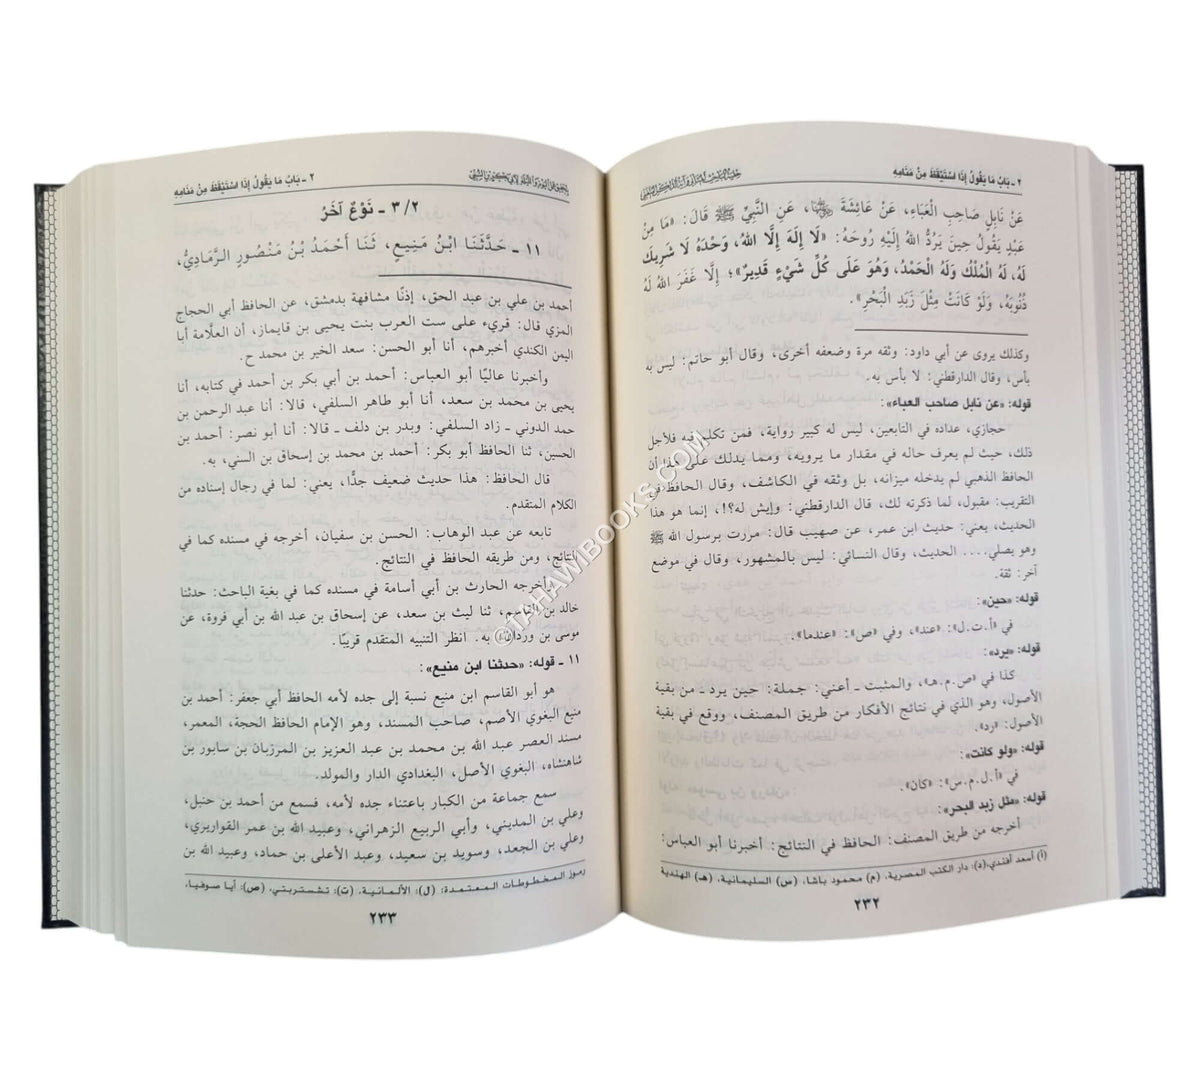 ٢ ـ بَابُ مَا يَقُولُ إِذَا اسْتَيْقَظَ مِنْ مَنَامِهِ
عَنْ نَابِلٍ صَاحِبِ الْعَبَاءِ، عَنْ عَائِشَةَ ﵂، عَنِ النَّبِيِّ ﷺ قَالَ: «مَا مِنْ
عَبْدٍ يَقُولُ حِينَ يَرُدُّ اللهُ إِلَيْهِ رُوحَهُ: «لَا إِلَهَ إِلَّا اللهُ، وَحْدَهُ لَا شَرِيكَ
لَهُ، لَهُ الْمُلْكُ وَلَهُ الْحَمْدُ، وَهُوَ عَلَى كُلِّ شَيْءٍ قَدِيرٌ»؛ إِلَّا غَفَرَ اللهُ لَهُ
ذُنُوبَهُ، وَلَوْ كَانَتْ مِثْلَ زَبَدِ الْبَحْرِ».
وكذلك يروى عن أبي داود: وثقه مرة وضعفه أخرى، وقال أبو حاتم: ليس به
بأس، وقال الدارقطني: لا بأس به.
قوله: «عن نابل صاحب العباء»:
حجازي، عداده في التابعين، ليس له كبير رواية، فمن تكلم فيه فلأجل
ذلك، حيث لم يعرف حاله في مقدار ما يرويه، ومما يدلك على هذا أن
الحافظ الذهبي لم يدخله ميزانه، بل وثقه في الكاشف، وقال الحافظ في
التقريب: مقبول، لما ذكرته لك، قال الدارقطني: وإيش له؟!، إنما هو هذا
الحديث، يعني: حديث ابن عمر، عن صهيب قال: مررت برسول الله ﷺ
وهو يصلي.... الحديث، وقال النسائي: ليس بالمشهور، وقال في موضع
آخر: ثقة.
قوله: «حين»:
في «أ.ت.ل»: «عند»، وفي «ص»: «عندما».
قوله: «يرد»:
كذا في «ص.م.هـ»، والمثبت ـ أعني: جملة: حين يرد ـ من بقية
الأصول، وهو الذي في نتائج الأفكار من طريق المصنف، ووقع في بقية
الأصول: «رد».
قوله: «ولو كانت»:
في «أ.ل.م.س»: «كان».
قوله: «مثل زبد البحر»:
أخرجه من طريق المصنف: الحافظ في النتائج: أخبرنا أبو العباس:
(أ) أسعد أفندي، (د): دار الكتب المصرية، (م) محمود باشا، (س) السليمانية، (هـ) الهندية
٢٣٢
٢ ـ بَابُ مَا يَقُولُ إِذَا اسْتَيْقَظَ مِنْ مَنَامِهِ
٣/٢ ـ نَوْعٌ آخَرُ
١١ ـ حَدَّثَنَا ابْنُ مَنِيعٍ، ثَنَا أَحْمَدُ بْنُ مَنْصُورٍ الرَّمَادِيُّ،
أحمد بن علي بن عبد الحق، إذنًا مشافهة بدمشق، عن الحافظ أبي الحجاج
المزي قال: قريء على ست العرب بنت يحيى بن قايماز، أن العلَّامة أبا
اليمن الكندي أخبرهم، أنا أبو الحسن: سعد الخير بن محمد ح.
وأخبرنا عاليًا أبو العباس: أحمد بن أبي بكر بن أحمد في كتابه، أنا
يحيى بن محمد بن سعد، أنا أبو طاهر السلفي، قالا: أنا عبد الرحمن بن
حمد الدوني ـ زاد السلفي: وبدر بن دلف ـ قالا: أنا أبو نصر: أحمد بن
الحسين، ثنا الحافظ أبو بكر: أحمد بن محمد بن إسحاق بن السني، به.
قال الحافظ: هذا حديث ضعيف جدًّا، يعني: لما في رجال إسناده من
الكلام المتقدم.
تابعه عن عبد الوهاب: الحسن بن سفيان، أخرجه في مسنده كما في
النتائج، ومن طريقه الحافظ في النتائج.
وأخرجه الحارث بن أبي أسامة في مسنده كما في بغية الباحث: حدثنا
خالد بن القاسم، ثنا ليث بن سعد، عن إسحاق بن عبد الله بن أبي فروة، عن
موسى بن وردان، به. انظر التنبيه المتقدم قريبًا.
١١ ـ قوله: «حدثنا ابن منيع»:
هو أبو القاسم ابن منيع نسبة إلى جده لأمه الحافظ أبي جعفر: أحمد بن
منيع البغوي الأصم، صاحب المسند، وهو الإمام الحافظ الحجة، المعمر،
مسند العصر عبد الله بن محمد بن عبد العزيز بن المرزبان بن سابور بن
شاهنشاه، البغوي الأصل، البغدادي الدار والمولد.
سمع جماعة من الكبار باعتناء جده لأمه، فسمع من أحمد بن حنبل،
وعلي بن المديني، وأبي الربيع الزهراني، وعبيد الله بن عمر القواريري،
وعلي بن الجعد، وسويد بن سعيد، وعبد الأعلى بن حماد، وعبيد الله بن
رموز المخطوطات المعتمدة: (ل): الألمانية، (ت): تشستربتي، (ص): أيا صوفيا،
٢٣٣
©TAHAWIBOOKS.COM